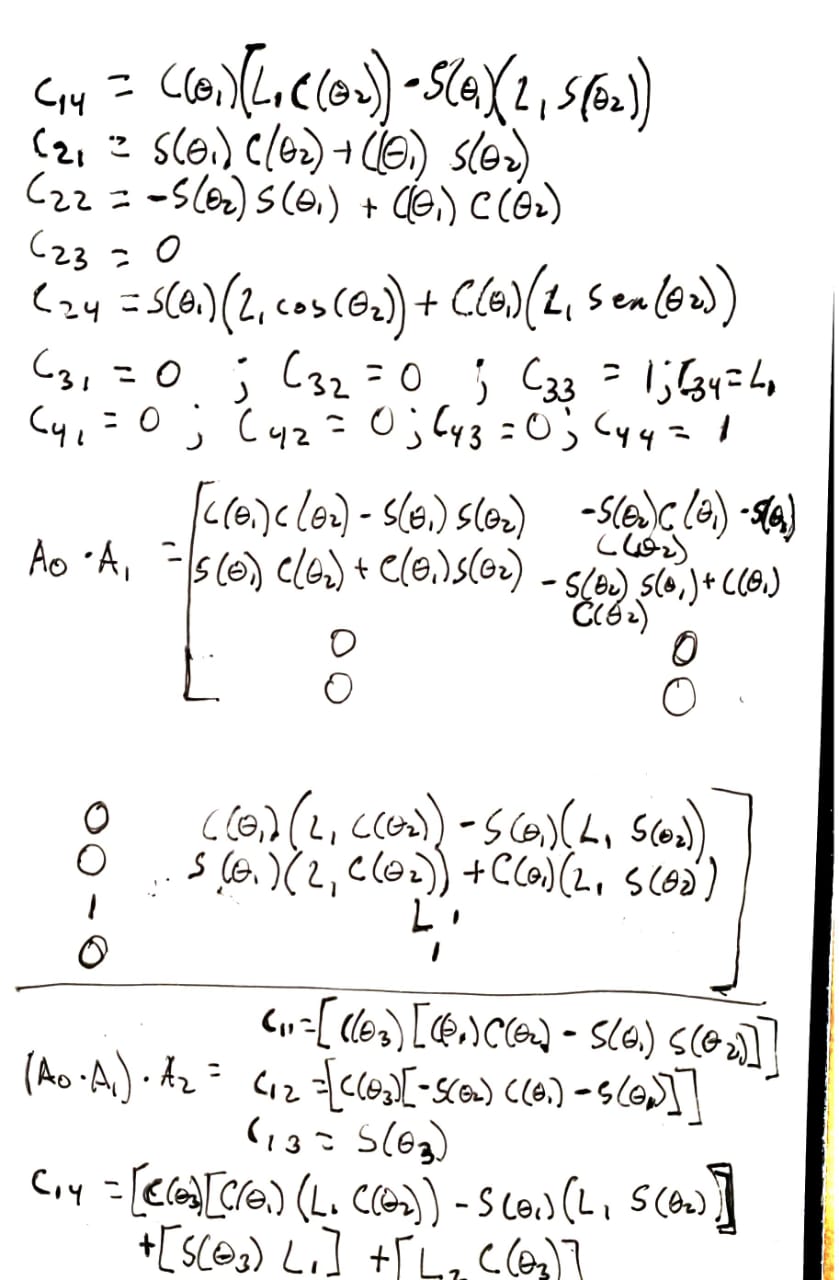 C14 = C(θ1)[L1 C(θ2)) - S(θ1)(L1 S(θ2))
C21 = S(θ1) C(θ2) + C(θ1) S(θ2)
C22 = -S(θ2) S(θ1) + C(θ1) C(θ2)
C23 = 0
C24 = S(θ1)(L1 cos(θ2)) + C(θ1)(L1 Sen(θ2))
C31 = 0 ; C32 = 0 ; C33 = 1 ; C34 = L1
C41 = 0 ; C42 = 0 ; C43 = 0 ; C44 = 1
[C(θ1)C(θ2) - S(θ1) S(θ2) -S(θ2)C(θ1) -S(θ1)
C(θ2)
A0 · A1 = S(θ1) C(θ2) + C(θ1)S(θ2) -S(θ2) S(θ1) + C(θ1)
C(θ2)
0 0
0 0
0 C(θ1)(L1 C(θ2)) - S(θ1)(L1 S(θ2))]
0 S(θ1)(L1 C(θ2)) + C(θ1)(L1 S(θ2)
1 L1
0 1
C11 = [C(θ3)[C(θ1)C(θ2) - S(θ1) S(θ2)]]
(A0 · A1) · A2 = C12 = [C(θ3)[-S(θ2) C(θ1) - S(θ1)]]
C13 = S(θ3)
C14 = [C(θ3)[C(θ1) (L1 C(θ2)) - S(θ1)(L1 S(θ2)]
+[S(θ3) L1] + [L2 C(θ3)]